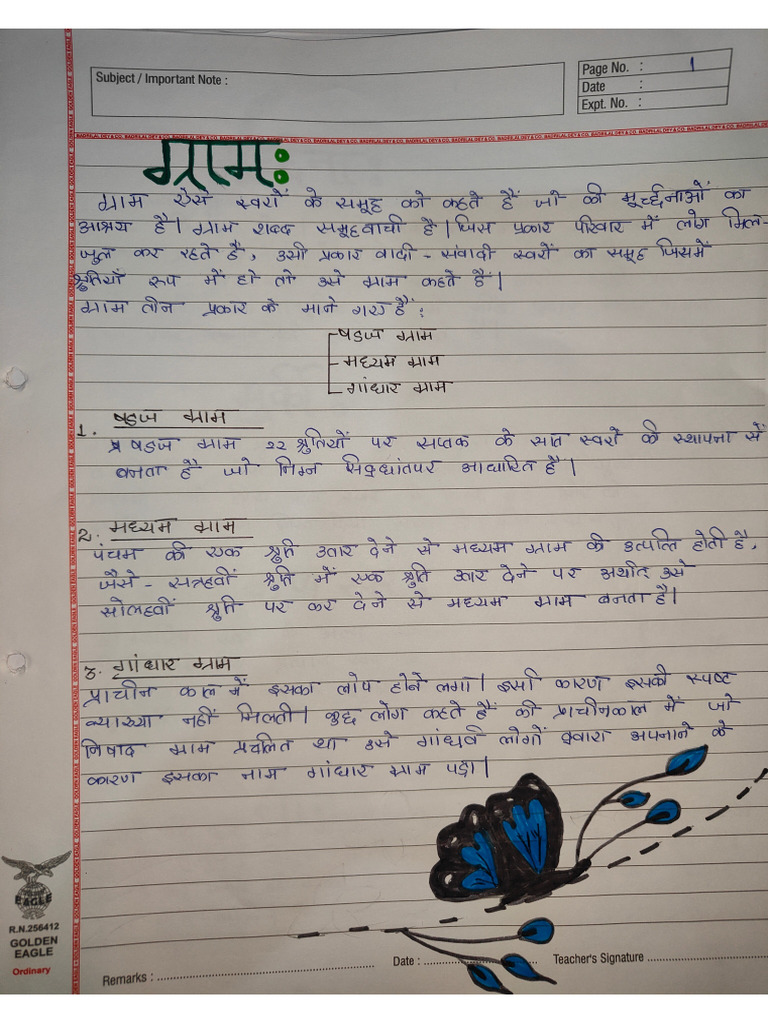 Subject / Important Note :
Page No. : 1
Date :
Expt. No. :
ग्राम:
ग्राम ऐसे स्वरों के समूह को कहते हैं जो की मूर्च्छनाओं का
आश्रय है। ग्राम शब्द समूहवाची है। जिस प्रकार परिवार में लोग मिल-
जुल कर रहते हैं, उसी प्रकार वादी - संवादी स्वरों का समूह जिसमें
श्रुतियाँ रूप में हो तो उसे ग्राम कहते हैं।
ग्राम तीन प्रकार के माने गए हैं:
षडज ग्राम
मध्यम ग्राम
गांधार ग्राम
1. षडज ग्राम
षडज ग्राम २२ श्रुतियों पर सप्तक के सात स्वरों की स्थापना से
बनता है जो निम्न सिद्धांतपर आधारित है।
2. मध्यम ग्राम
पंचम की एक श्रुति उतार देने से मध्यम ग्राम की उत्पत्ति होती है,
जैसे - सत्रहवीं श्रुति में एक श्रुति उतार देने पर अर्थात् उसे
सोलहवीं श्रुति पर कर देने से मध्यम ग्राम बनता है।
3. गांधार ग्राम
प्राचीन काल में इसका लोप होने लगा। इसी कारण इसकी स्पष्ट
व्याख्या नहीं मिलती। कुछ लोग कहते हैं की प्राचीनकाल में जो
निषाद ग्राम प्रचलित था उसे गांधर्व लोगों द्वारा अपनाने के
कारण इसका नाम गांधार ग्राम पड़ा।
EAGLE
R.N.256412
GOLDEN
EAGLE
Ordinary
Remarks :
Date :
Teacher's Signature